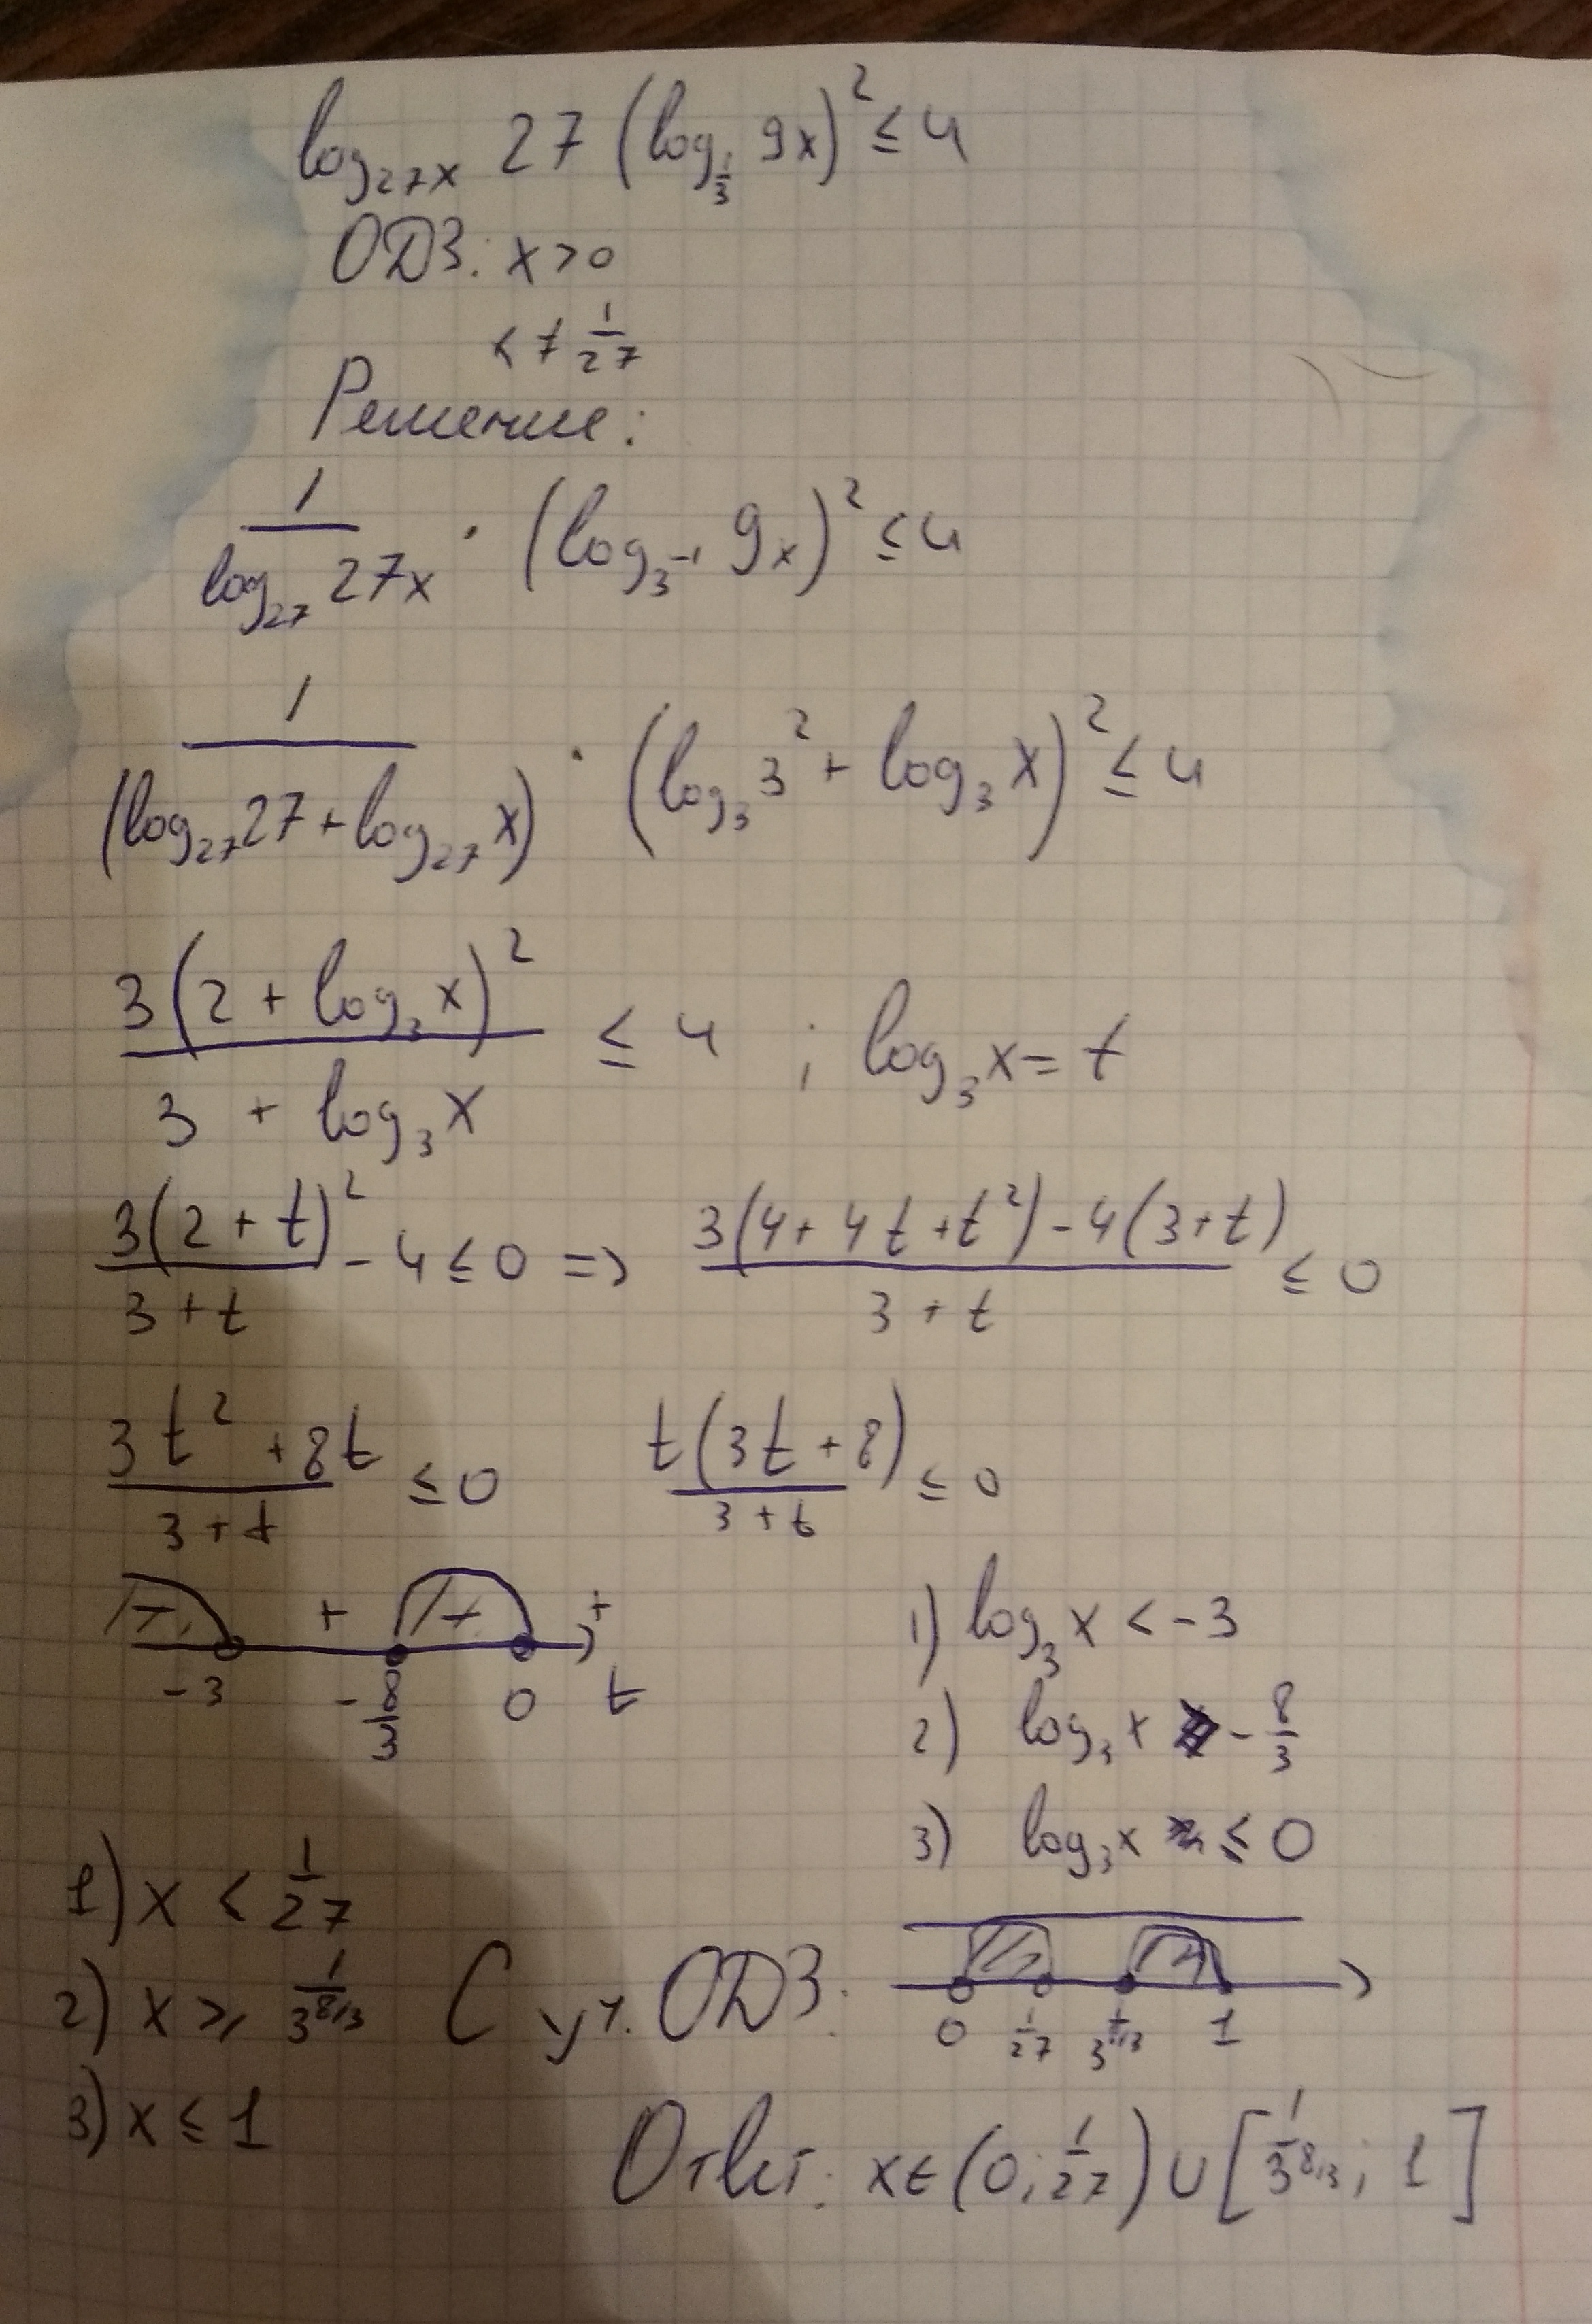 log₂₇ₓ 27 (log_{1/3} 9x)² ≤ 4
ОДЗ: x > 0
x ≠ 1/27
Решение:
1/(log₂₇ 27x) · (log_{3⁻¹} 9x)² ≤ 4
1/(log₂₇ 27 + log₂₇ x) · (log₃ 3² + log₃ x)² ≤ 4
3(2 + log₃ x)²/(3 + log₃ x) ≤ 4 ; log₃ x = t
3(2 + t)²/(3 + t) - 4 ≤ 0 => (3(4 + 4t + t²) - 4(3 + t))/(3 + t) ≤ 0
(3t² + 8t)/(3 + t) ≤ 0 t(3t + 8)/(3 + t) ≤ 0
- + - +
-3 -8/3 0 t
1) log₃ x < -3
2) log₃ x -8/3
3) log₃ x ≤ 0
1) x < 1/27
2) x ≥ 1/3^{8/3}
3) x ≤ 1
С уч. ОДЗ:
0 1/27 1/3^{8/3} 1
Ответ: x ∈ (0; 1/27) ∪ [1/3^{8/3}; 1]